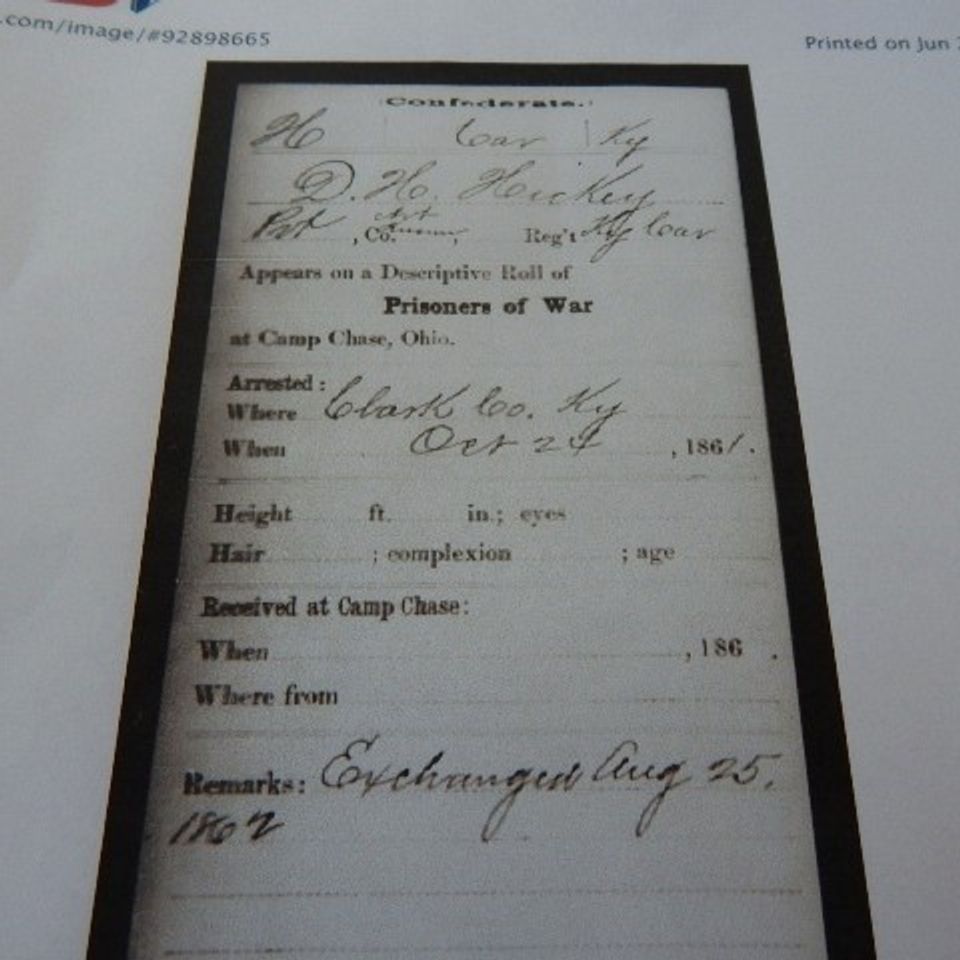 .com/image/#92898665
Printed on Jun
Confederate.
H Cav Ky
D. H. Hickey
Pvt, Co. Reg't Ky Cav
Appears on a Descriptive Roll of
Prisoners of War
at Camp Chase, Ohio.
Arrested:
Where Clark Co. Ky
When Oct 24, 1861.
Height ft. in.; eyes
Hair ; complexion ; age
Received at Camp Chase:
When , 186 .
Where from
Remarks: Exchanged Aug 25.
1862